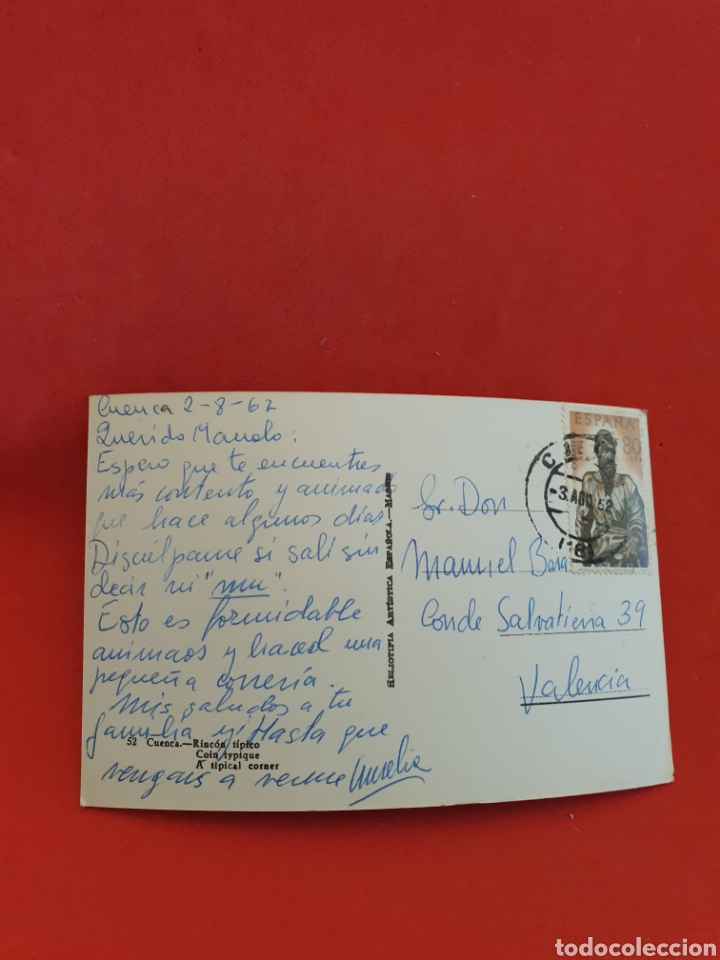 Cuenca 2-8-62
Querido Manolo:
Espero que te encuentres
más contento y animado
que hace algunos días
Disculpame si salí sin
decir ni "mu".
Esto es formidable
animaos y haced una
pequeña correría.
Mis saludos a tu
familia y Hasta que
vengais a verme Amelia
52 Cuenca.—Rincón típico
Coin typique
A tipical corner
HELIOTIPIA ARTÍSTICA ESPAÑOLA.—MADRID
ESPAÑA
80
3 AGO 62
Sr. Don
Manuel
Conde Salvatierra 39
Valencia
todocoleccion